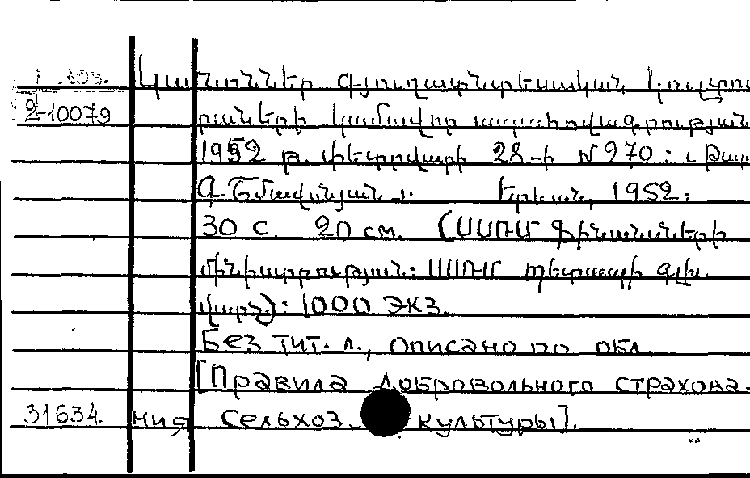 Կանոններ գյուղատնտեսական կուլտու
2-10079 րաների կամավոր ապահովագրության
1952 թ. փետրվարի 28-ի N 270:
Երևան, 1952:
30 с. 20 см. (ՍՍՌՄ Ֆինանսների
մինիստրություն: ՍՍՌՄ պետապի գլխ.
վարչ): 1000 экз.
Без тит. л., описано по обл.
[Правила добровольного страхова-
31634. ния сельхоз. культуры].